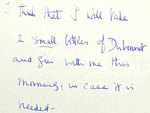 I think that I will take
2 small bottles of Dubonnet
and gin with me this
morning, in case it is
needed.